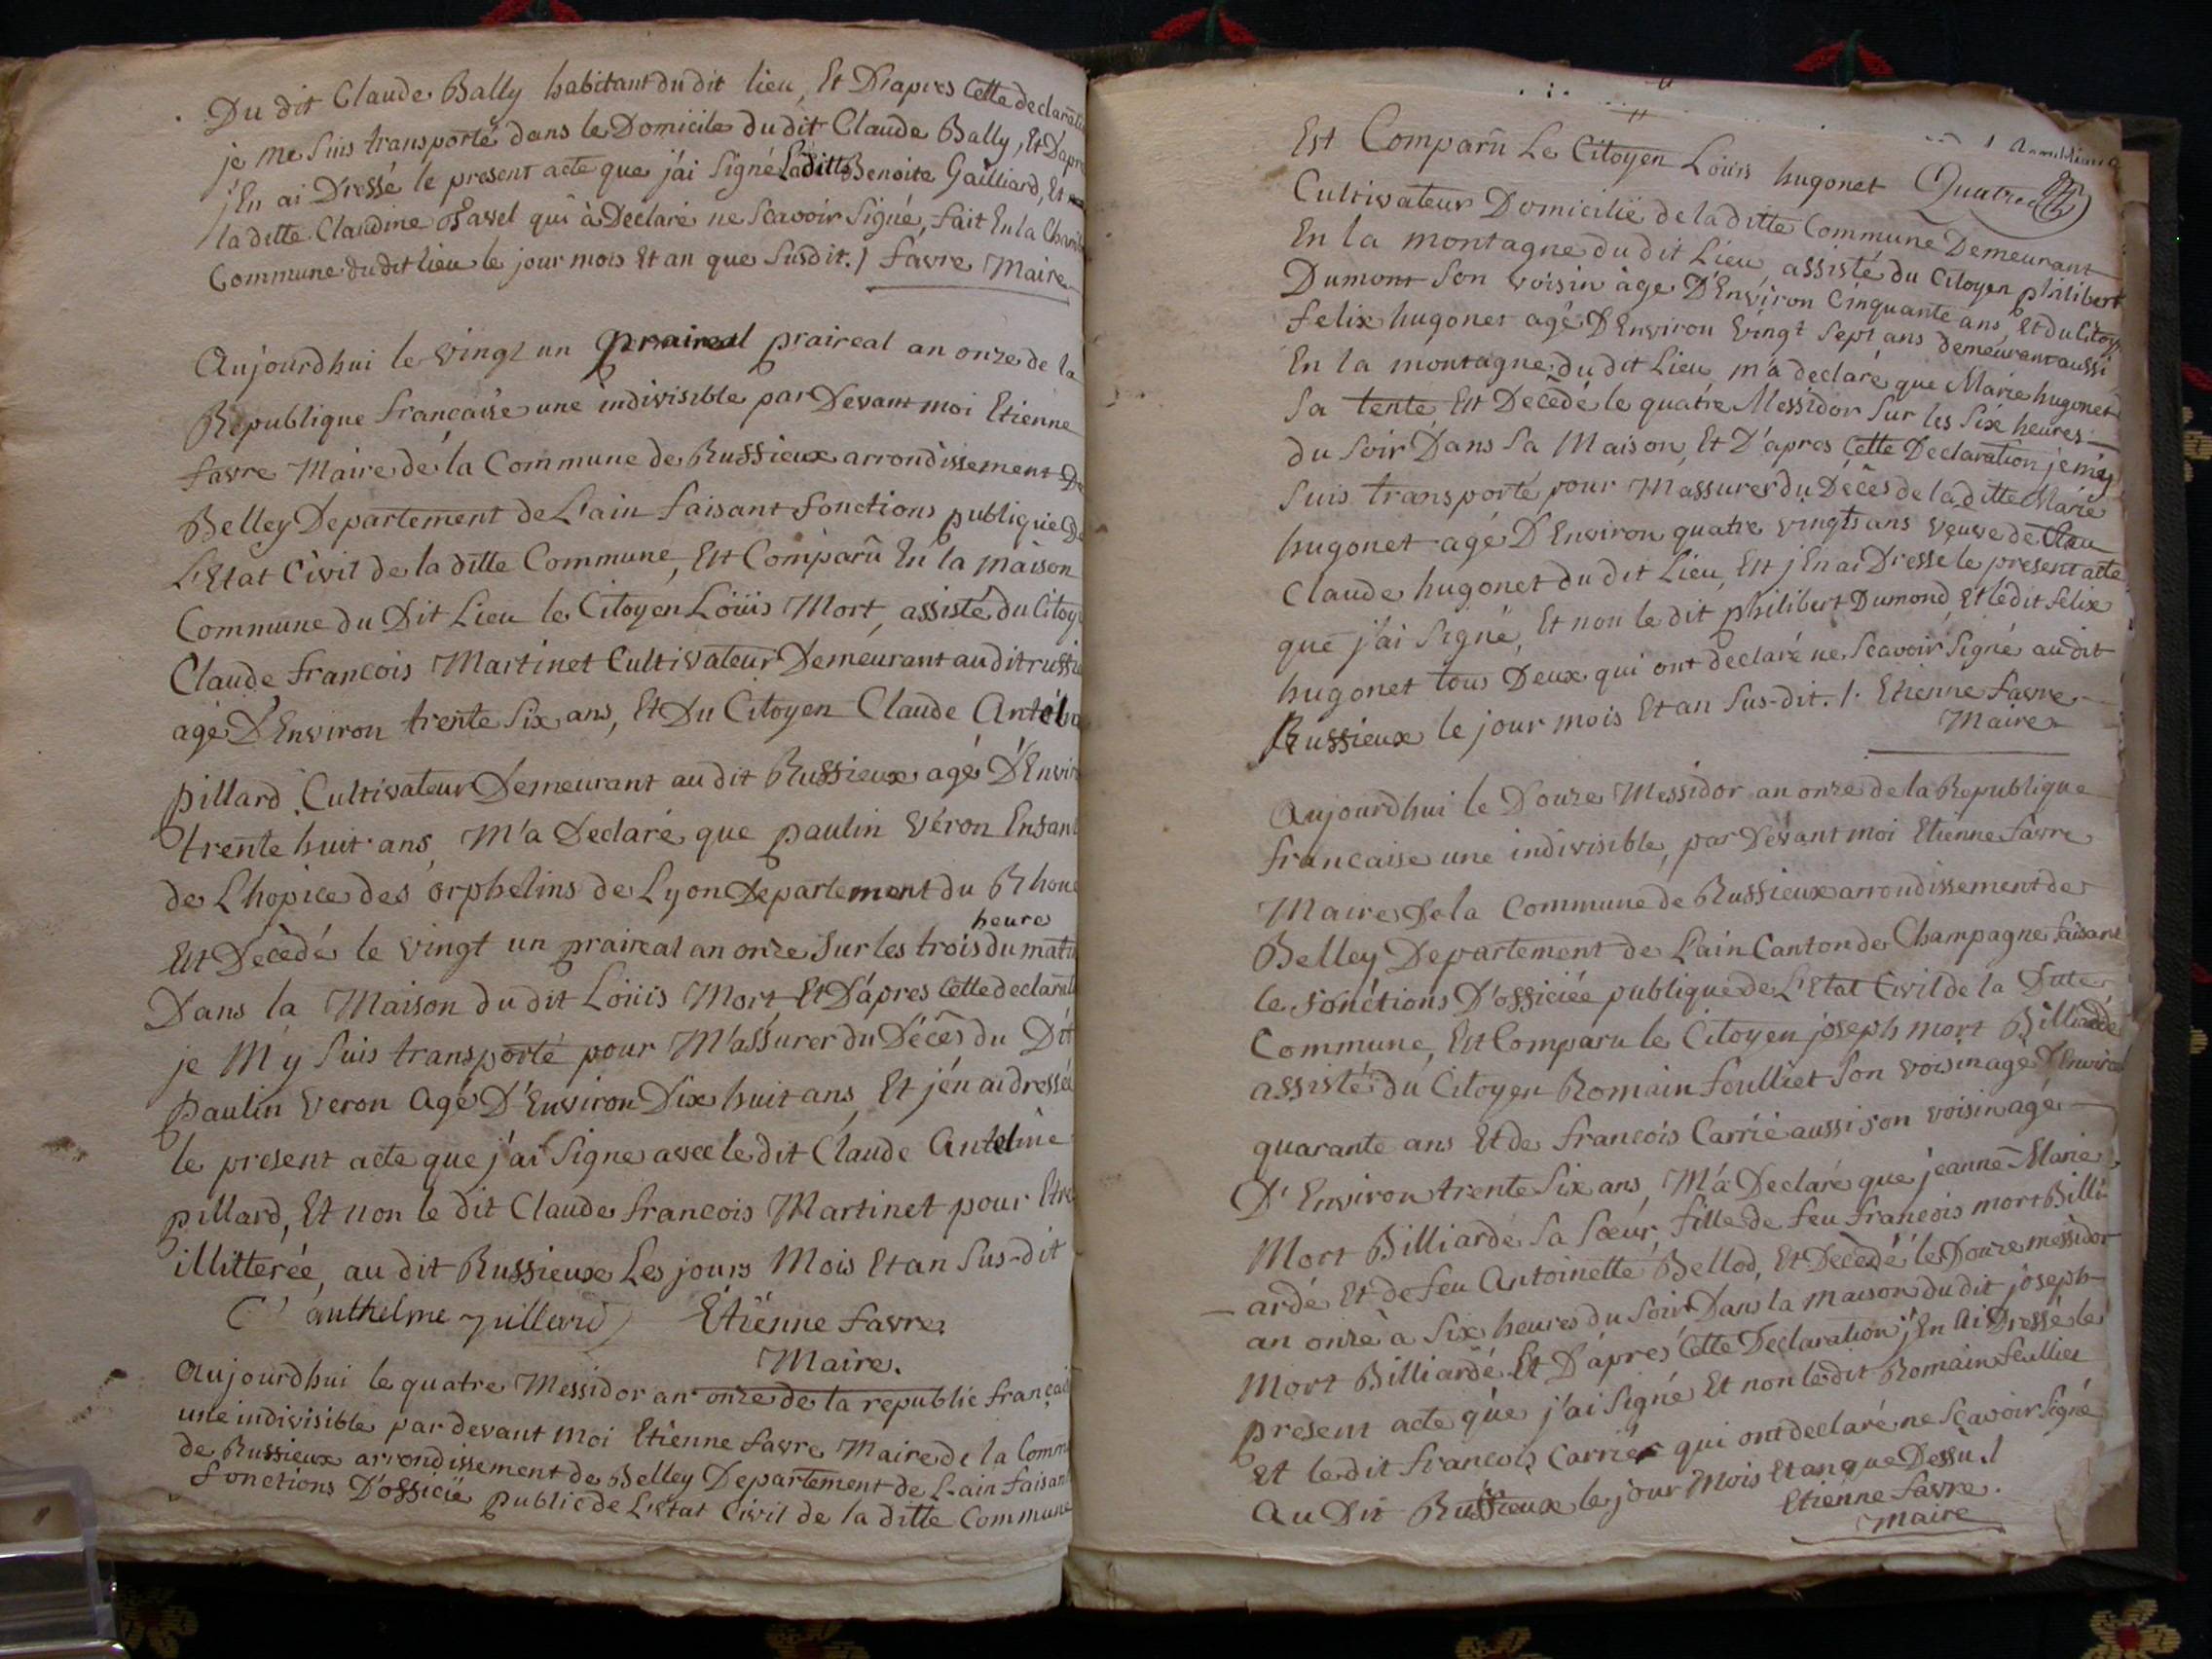 Du dit Claude Bally habitant du dit lieu, Et D'apres Cette declarati
je me Suis transporté dans le Domicile du dit Claude Bally, Et D'apr
j'En ai Dressé le present acte que j'ai Signé Laditte Benoite Gailliard, Et
la ditte Claudine Favel qui à Declaré ne Scavoir Signé, fait En la
Commune du dit lieu le jour mois Et an que Susdit. / favre Maire
Aujourdhui le vingt un praireal an onze de la
Republique francaise une indivisible par Devant moi Etienne
favre Maire de la Commune de Russieux arrondissement De
Belley Departement de L'ain faisant fonctions publique De
L'Etat Civil de la ditte Commune, Est Comparû En la maison
Commune du Dit Lieu le Citoyen Loüis Mort, assisté du Citoy
Claude francois Martinet Cultivateur Demeurant au dit russi
agé D'Environ trente Six ans, Et Du Citoyen Claude Antel
pillard Cultivateur Demeurant au dit Russieux agé D'Envir
trente huit ans, M'a Declaré que paulin Véron Enfant
de L'hopice des orphelins de Lyon Departement du Rhone
heure
Est Décedé le vingt un praireal an onze Sur les trois du mati
Dans la Maison du dit Loüis Mort Et D'apres Cette declarati
je M'y Suis transporté pour M'assurer du Décès du Dit
paulin veron Agé D'Environ Dix huit ans, Et j'en ai dressée
le present acte que j'ai Signe avec le dit Claude Antelme
pillard, Et non le dit Claude francois Martinet pour Etre
illitterée, au dit Russieux Les jours Mois Et an Sus-dit
C anthelme pillard Etïenne favre
Maire.
Aujourdhui le quatre Messidor an onze de la republic françai
une indivisible par devant moi Etienne favre Maire de la Comm
de Russieux arrondissement de Belley Departement de L'ain faisant
fonctions D'officië public de L'etat Civil de la ditte Commune
Est Comparû Le Citoyen Loüis hugonet
Cultivateur Domicilié de la ditte Commune Demeurant
En la montagne du dit Lieu, assisté du Citoyen philibert
Dumont Son voisin àge D'Environ Cinquante ans, Et du Citoy
felix hugonet agé D'Environ vingt Sept ans demeurant aussi
En la montagne du dit Lieu m'a declaré que Marie hugonet
Sa tente Est Décédé le quatre Messidor Sur les Six heures
du Soir Dans Sa Maison, Et D'apres Cette Declaration je m'ey
Suis transporté pour M'assurer du Décès de la ditte Marie
hugonet agé D'Environ quatre vingts ans veuve de
Claude hugonet du dit Lieu, Est j'En ai Dressé le present acte
que j'ai Signé, Et non le dit philibert Dumond, Et le dit felix
hugonet tous Deux qui ont declaré ne Scavoir Signé au dit
Russieux le jour mois Et an Sus-dit. /. Etienne favre
Maire
Aujourdhui le Douze Messidor an onze de la Republique
francaise une indivisible, par Devant moi Etienne favre
Maire De la Commune de Russieux arrondissement de
Belley Departement de L'ain Canton de Champagne faisant
le fonctions D'officiée publique de L'Etat Civil de la Dite
Commune, Est Comparu le Citoyen joseph mort Billiardé
assisté du Citoyen Romain feulliet Son voisin agé D'Environ
quarante ans Et de francois Carrié aussi Son voisin agé
D'Environ trente Six ans, M'a Declaré que jeanne Marie
Mort Billiardé Sa Sœur, fille de feu francois mort Billi
- ardé Et de feu Antoinette Bellod, Et Décedé le Douze messidor
an onze à Six heures du Soir Dans la maison du dit joseph
Mort Billiardé Et D'apres Cette Declaration j'En Ai Dressé le
present acte que j'ai Signé Et non le dit Romain feulliet
Et le dit francois Carrier qui ont declaré ne Sçavoir Signé
Au Dit Russieux le jour Mois Et an que Dessu. /
Etienne favre.
maire